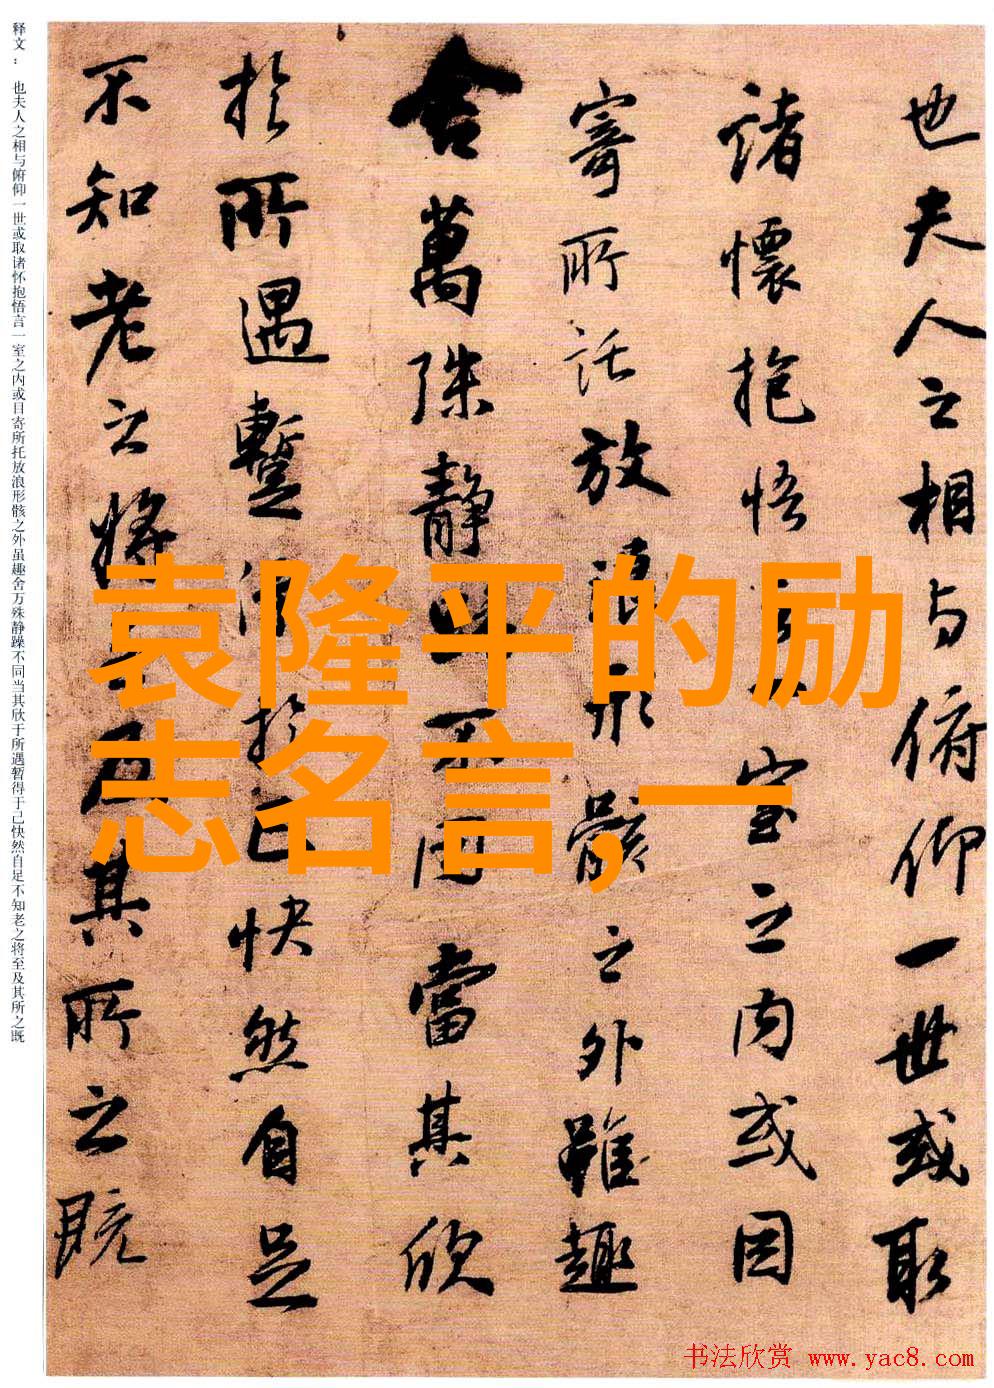 也夫人之相与俯仰一世或取
諸懷抱悟室之内或因
寄所託放浪形骸之外雖趣
舍萬殊靜不同當其欣
於所遇蹔得於己快然自足
不知老之將至及其所之既
释文： 也夫人之相与俯仰一世或取诸怀抱悟言一室之内或目寄所托放浪形骸之外虽趣舍万殊静躁不同当其欣于所遇暂得于己快然自足不知老之将至及其所之既
袁隆平的励
志名言,一
书法欣赏 www.yac8.com